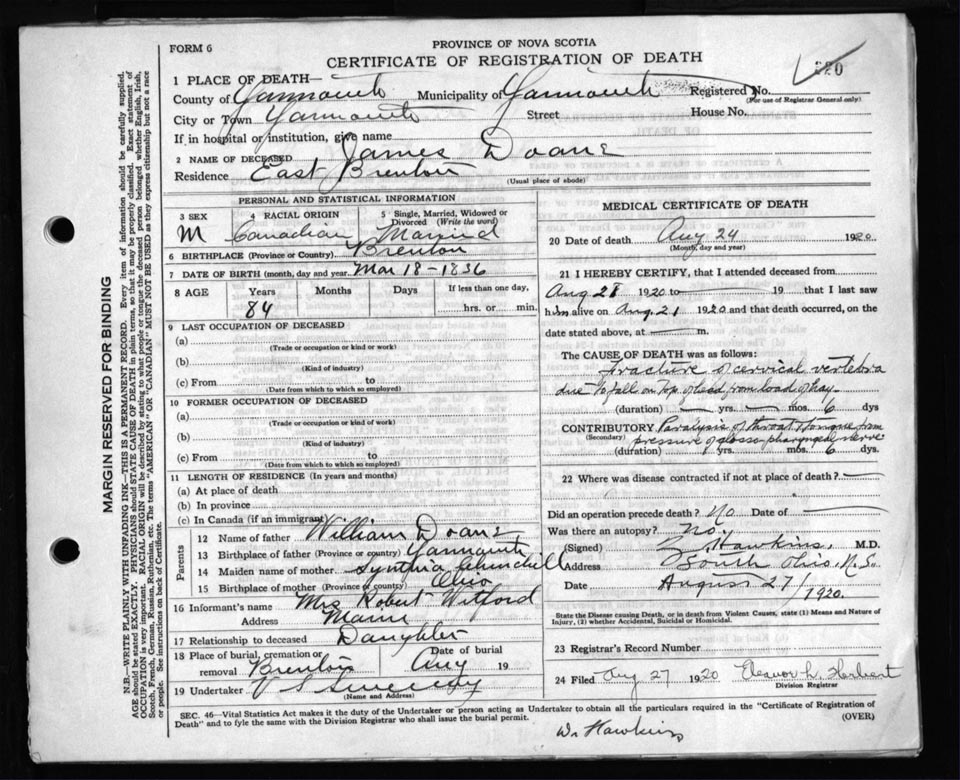 FORM 6
PROVINCE OF NOVA SCOTIA
CERTIFICATE OF REGISTRATION OF DEATH
1 PLACE OF DEATH—
County of Yarmouth Municipality of Yarmouth Registered No.
(For use of Registrar General only)
City or Town Yarmouth Street House No.
If in hospital or institution, give name
2 NAME OF DECEASED James Doane
Residence East Brenton
(Usual place of abode)
PERSONAL AND STATISTICAL INFORMATION
3 SEX 4 RACIAL ORIGIN 5 Single, Married, Widowed or Divorced (Write the word)
M Canadian Married
6 BIRTHPLACE (Province or Country) Brenton
7 DATE OF BIRTH (month, day and year) Mar 18–1836
8 AGE Years Months Days If less than one day,
84 hrs. or min.
9 LAST OCCUPATION OF DECEASED
(a)
(Trade or occupation or kind or work)
(b)
(Kind of industry)
(c) From to
(Date from which to which so employed)
10 FORMER OCCUPATION OF DECEASED
(a)
(Trade or occupation or kind of work)
(b)
(Kind of industry)
(c) From to
(Date from which to which so employed)
11 LENGTH OF RESIDENCE (In years and months)
(a) At place of death
(b) In province
(c) In Canada (if an immigrant)
Parents
12 Name of father William Doane
13 Birthplace of father (Province or country) Yarmouth
14 Maiden name of mother Synthia Churchill
15 Birthplace of mother (Province or country) Ohio
16 Informant's name Mrs Robert Witford
Address Maine
17 Relationship to deceased Daughter
18 Place of burial, cremation or removal Brenton Date of burial Aug 19
19 Undertaker V S Sweeney
(Name and Address)
MEDICAL CERTIFICATE OF DEATH
20 Date of death Aug 24 1920
(Month, day and year)
21 I HEREBY CERTIFY, that I attended deceased from
Aug 1920 to — 19 that I last saw
him alive on Aug. 21 1920 and that death occurred, on the
date stated above, at — m.
The CAUSE OF DEATH was as follows:
Fracture of cervical vertebra
due to fall on top of head from load of hay.
(duration) — yrs. — mos. 6 dys
CONTRIBUTORY Paralysis of throat & tongue from
(Secondary) pressure of glosso-pharyngeal nerve
(duration) yrs. mos. 6 dys
22 Where was disease contracted if not at place of death? —
Did an operation precede death? No Date of —
Was there an autopsy? no.
(Signed) Hawkins, M.D.
Address South Ohio, N.S.
Date August 27/1920.
State the Disease causing Death, or in death from Violent Causes, state (1) Means and Nature of
Injury, (2) whether Accidental, Suicidal or Homicidal.
23 Registrar's Record Number
24 Filed Aug 27 1920 Eleanor L. Herbert
Division Registrar
SEC. 46—Vital Statistics Act makes it the duty of the Undertaker or person acting as Undertaker to obtain all the particulars required in the "Certificate of Registration of
Death" and to fyle the same with the Division Registrar who shall issue the burial permit.
(OVER)
Hawkins
MARGIN RESERVED FOR BINDING
N.B.—WRITE PLAINLY WITH UNFADING INK—THIS IS A PERMANENT RECORD. Every item of information should be carefully supplied.
AGE should be stated EXACTLY. PHYSICIANS should STATE CAUSE OF DEATH in plain terms, so that it may be properly classified. Exact statement of
OCCUPATION is very important. RACIAL ORIGIN will be described by stating to what people or tongue the deceased person belonged whether English, Irish,
Scotch, French, German, Russian, Ruthenian, etc. The terms "AMERICAN" OR "CANADIAN" MUST NOT BE USED as they express citizenship but not a race
or people. See instructions on back of Certificate.